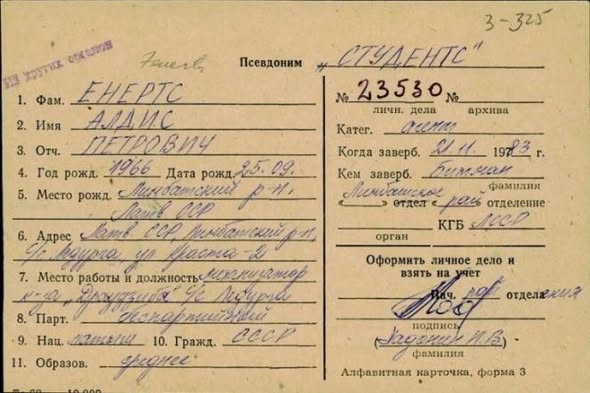 3-325
Псевдоним „СТУДЕНТС"
1. Фам. ЕНЕРТС
2. Имя АЛДИС
3. Отч. ПЕТРОВИЧ
4. Год рожд. 1966 Дата рожд. 25.09.
5. Место рожд. Лимбажский р-н,
Латв ССР
6. Адрес Латв ССР, Лимбажский р-н,
с/с Ледурга, ул Краста-2
7. Место работы и должность механизатор
к-за „Драудзиба" с/с Ледурга
8. Парт. беспартийный
9. Нац. латыш 10. Гражд. СССР
11. Образов. среднее
№ 23530 №
личн. дела архива
Катег. агент
Когда заверб. 21.11 1983 г.
Кем заверб.
фамилия
Лимбажское рай
отдел отделение
КГБ ЛССР
орган
Оформить личное дело и
взять на учет
Нач. рай отделения
подпись
фамилия
Алфавитная карточка, форма 3